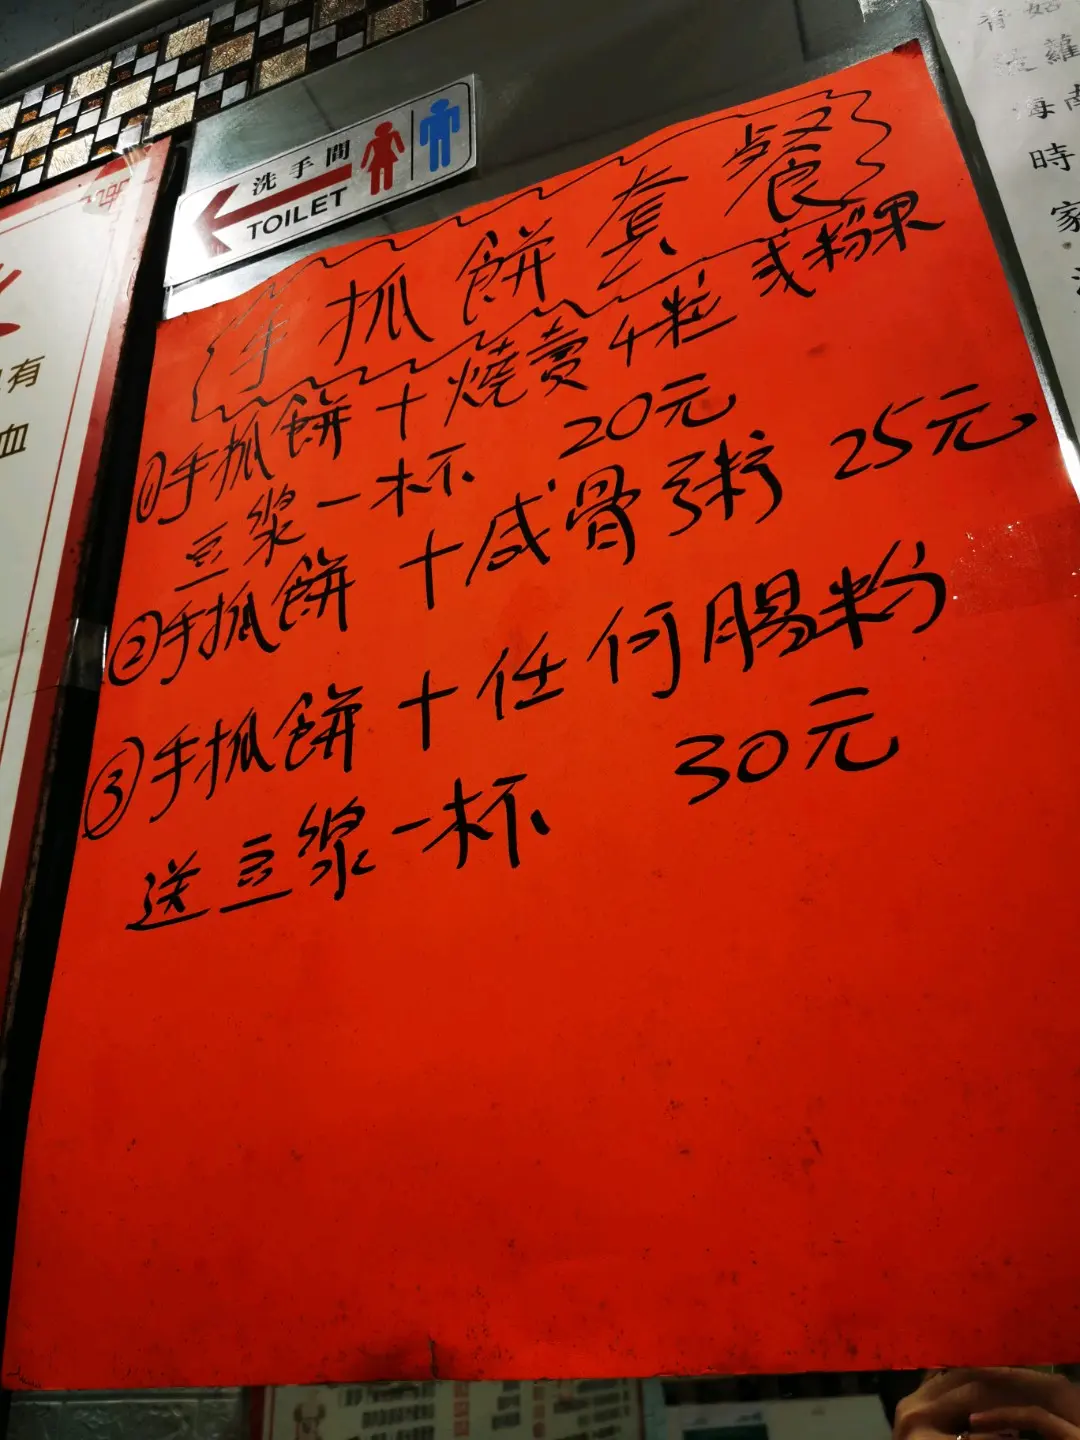 洗手間
TOILET
手抓餅套餐
①手抓餅十燒賣4粒或粉果
豆漿一杯 20元
②手抓餅十咸骨粥 25元
③手抓餅十任何腸粉
送豆漿一杯 30元
有
血
海南
時
家